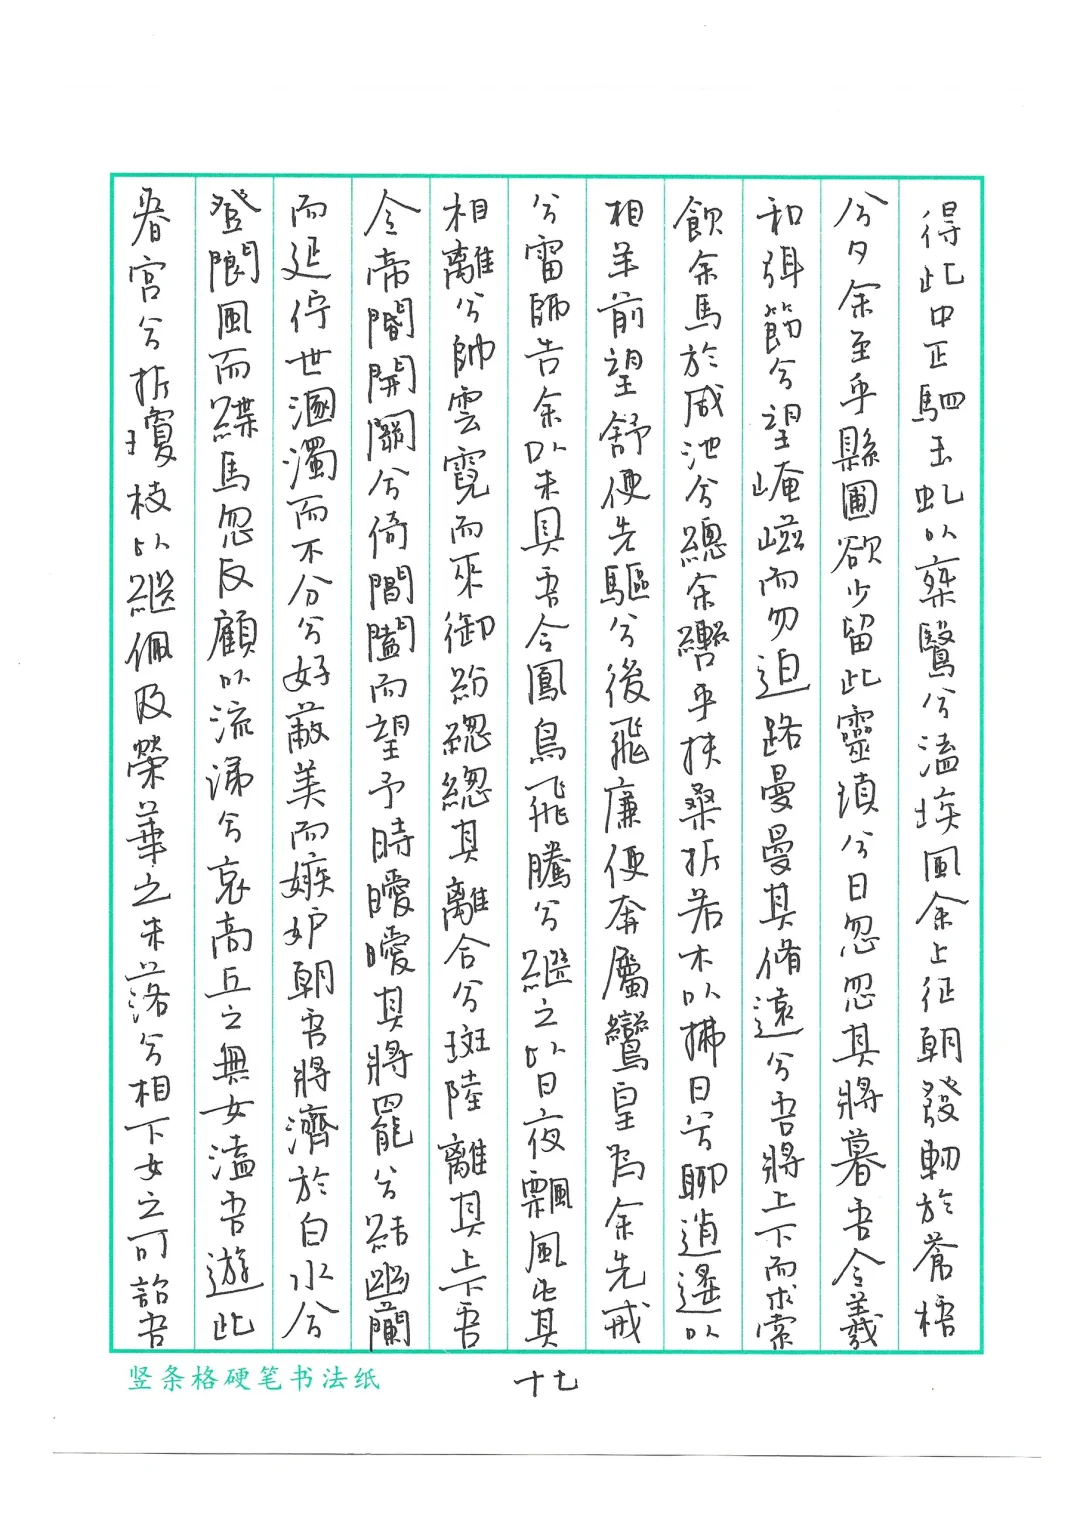 得此中正駟玉虬以椉鷖兮溘埃風余上征朝發軔於蒼梧
兮夕余至乎縣圃欲少留此靈瑣兮日忽忽其將暮吾令羲
和弭節兮望崦嵫而勿迫路曼曼其脩遠兮吾將上下而求索
飲余馬於咸池兮總余轡乎扶桑折若木以拂日兮聊逍遙以
相羊前望舒使先驅兮後飛廉使奔屬鸞皇為余先戒
兮雷師告余以未具吾令鳳鳥飛騰兮繼之以日夜飄風屯其
相離兮帥雲霓而來御紛緫緫其離合兮斑陸離其上下吾
令帝閽開關兮倚閶闔而望予時曖曖其將罷兮結幽蘭
而延佇世溷濁而不分兮好蔽美而嫉妒朝吾將濟於白水兮
登閬風而緤馬忽反顧以流涕兮哀高丘之無女溘吾遊此
春宮兮折瓊枝以繼佩及榮華之未落兮相下女之可詒吾
竖条格硬笔书法纸
十七